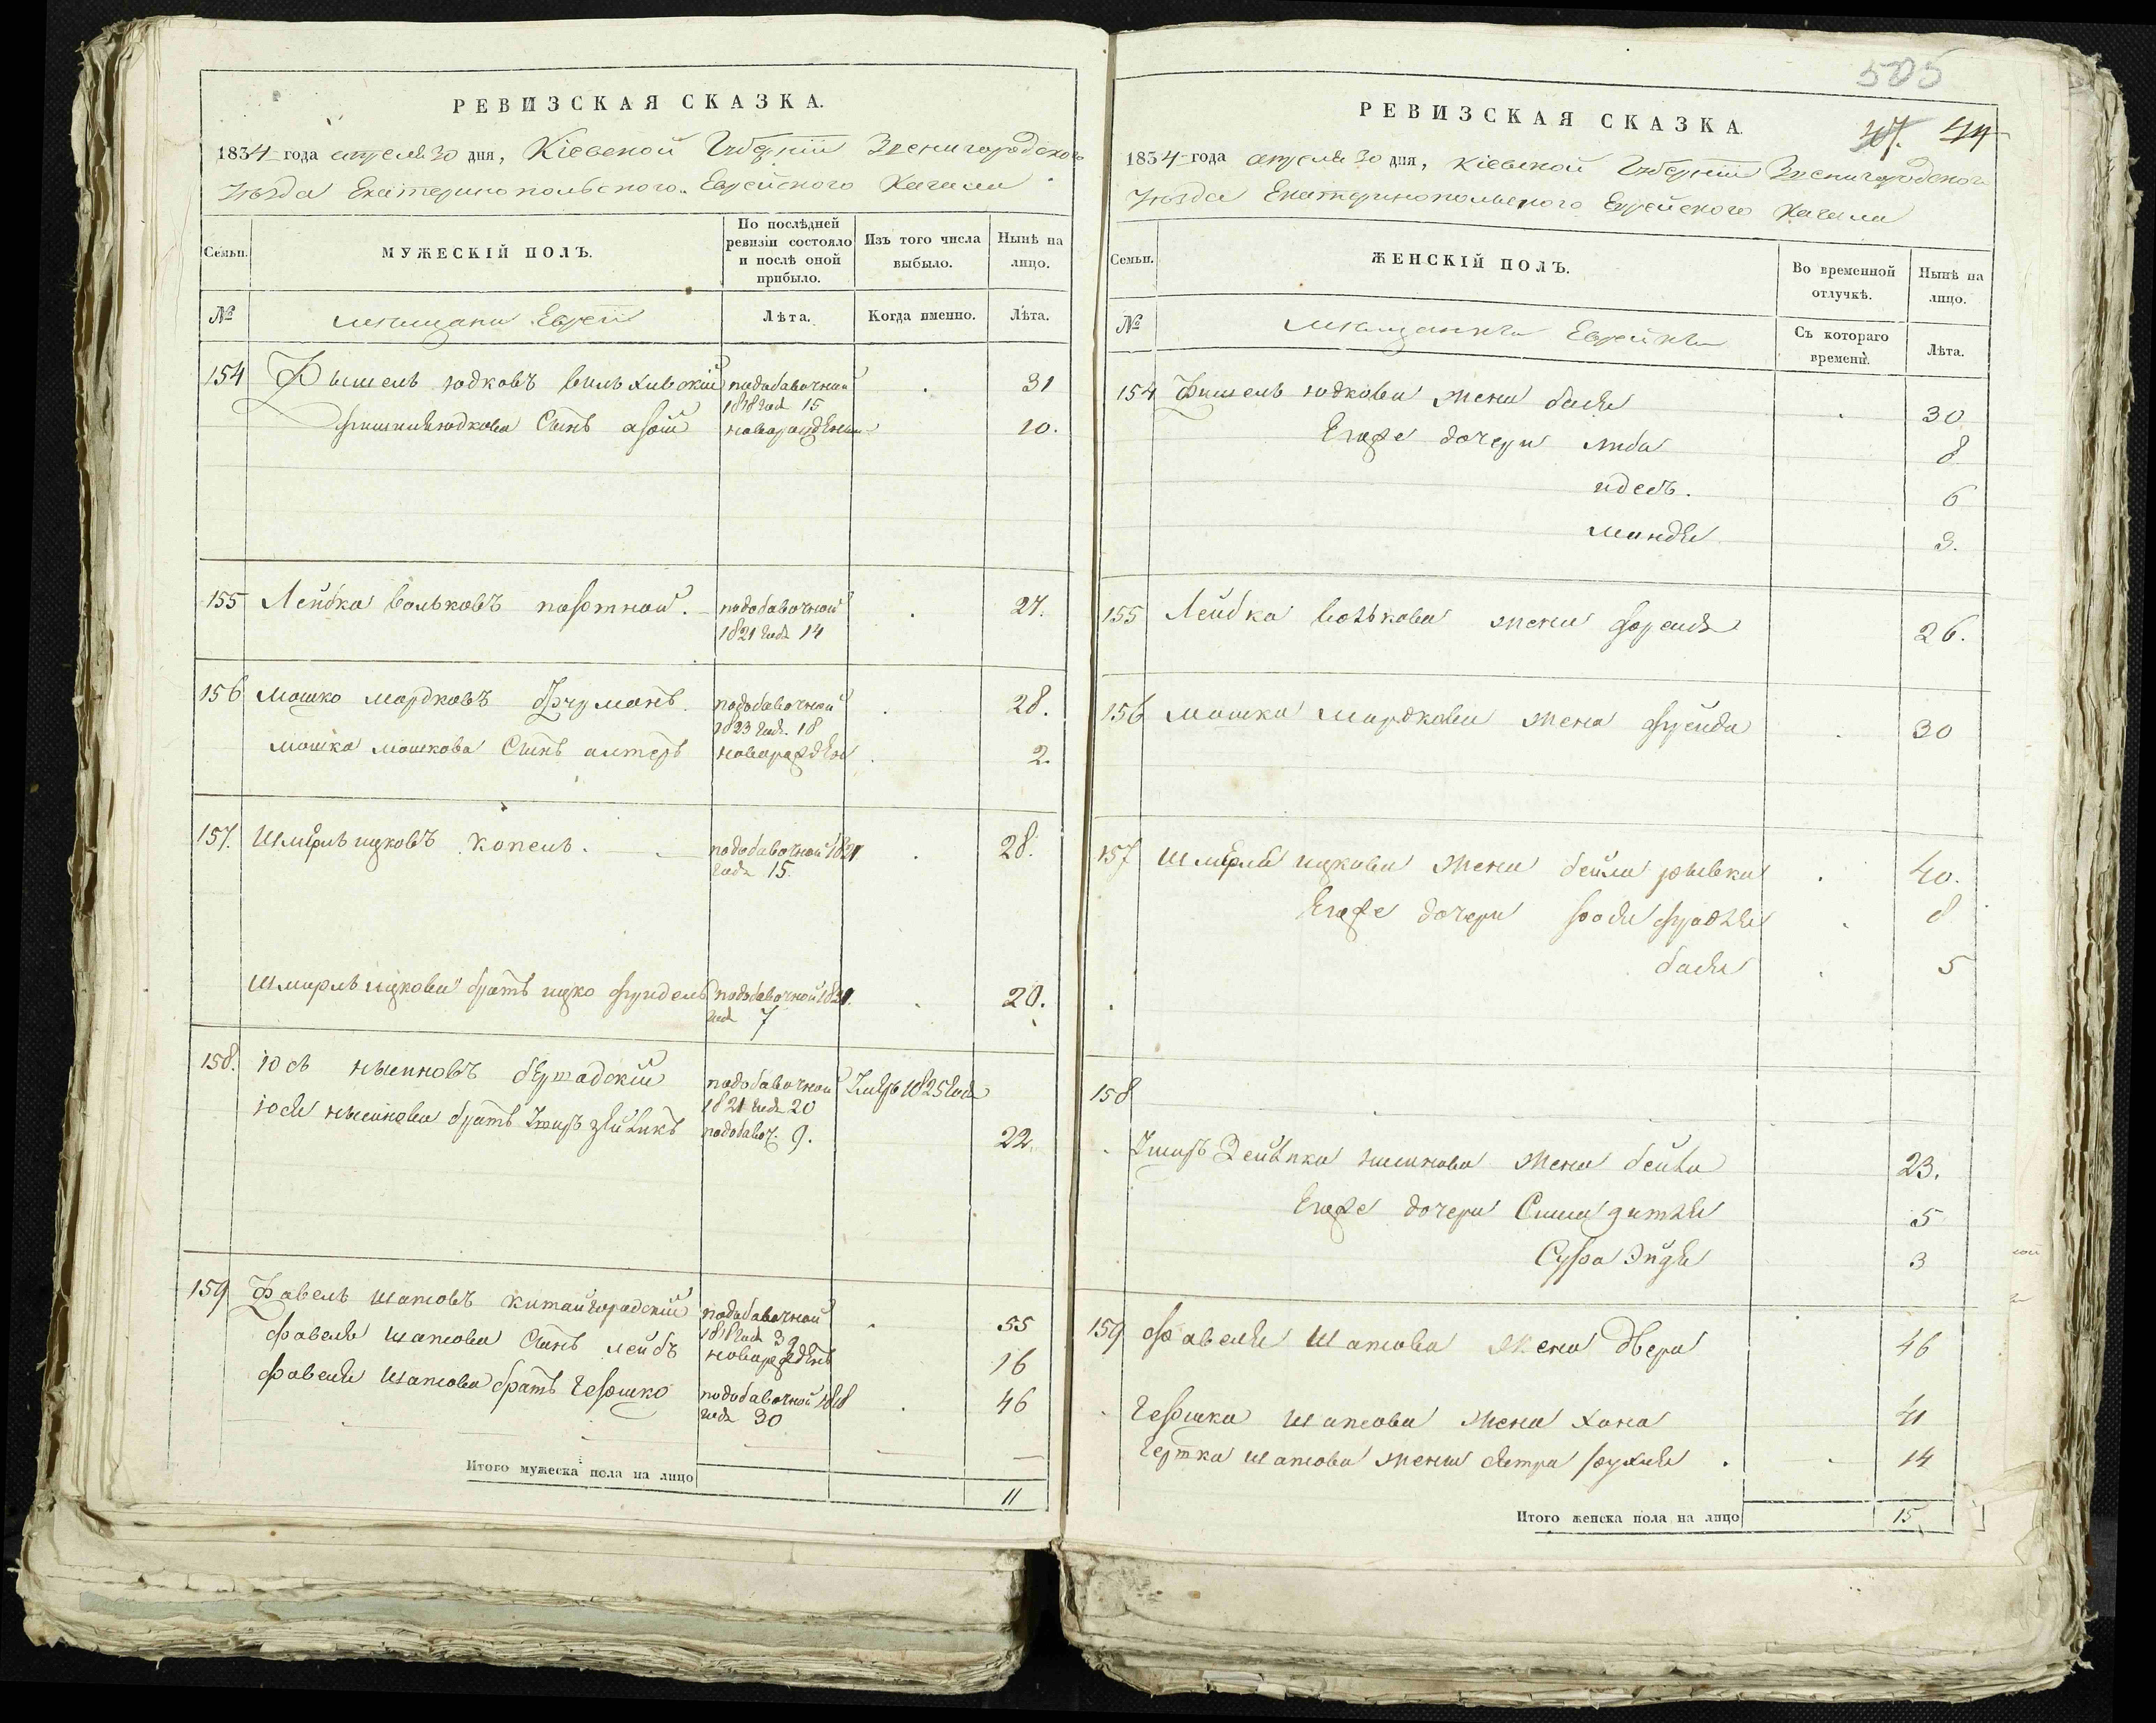 РЕВИЗСКАЯ СКАЗКА.
1834 года апреля 30 дня, Кіевской Губерніи Звенигородского
Уѣзда Екатеринопольского Еврейского Кагала
Семьи.
МУЖЕСКІЙ ПОЛЪ.
По послѣдней ревизіи состояло и послѣ оной прибыло.
Изъ того числа выбыло.
Нынѣ на лицо.
№
мещани Евреи
Лѣта.
Когда именно.
Лѣта.
154 Фышель юдковъ подобавочной 31
1818 года 15
юдкова Сынъ новорожденъ 10.
155 Лейбка вольковъ подобавочной 27.
1821 года 14
156 мошко мордковъ Фурманъ подобавочной 28.
1823 года 18
мошка мошкова Сынъ алтеръ новорожден 2.
157. Шмерль ицковъ копель. подобавочной 1821 28.
года 15.
Шмерль ицкова братъ ицко фридель подобавочной 1821. 20.
года 7
158. Юсь бершадскій подобавочной Умеръ 1825 года
1821 года 20
Юся братъ подобавоч. 9. 22.
159 Фавель шаповъ китайгородскій подобавочной 55
1818 года 39
фавеля шапова Сынъ лейбъ новорожденъ 16
фавеля шапова братъ гершко подобавочной 1818 46
года 30
Итого мужеска пола на лицо 11
505
47. 44
РЕВИЗСКАЯ СКАЗКА.
1834 года апреля 30 дня, Кіевской Губерніи Звенигородского
Уѣзда Екатеринопольского Еврейского Кагала
Семьи.
ЖЕНСКІЙ ПОЛЪ.
Во временной отлучкѣ.
Нынѣ на лицо.
№
мещанки Еврейки
Съ котораго времени.
Лѣта.
154 Фишель юдкова жена бася 30
Егоже дочери люба 8
идесъ. 6
мандя 3.
155 Лейбка волькова жена 26.
156 мошка мордкова жена фрейда 30
157 Шмерля ицкова жена бейла рывка 40.
Егоже дочери 8
бася 5
158
жена бейла 23.
Егоже дочери 5
Сура 3
159 фавеля Шапова жена двера 46
Гершка шапова жена хана 41
шапова 14
Итого женска пола на лицо 15